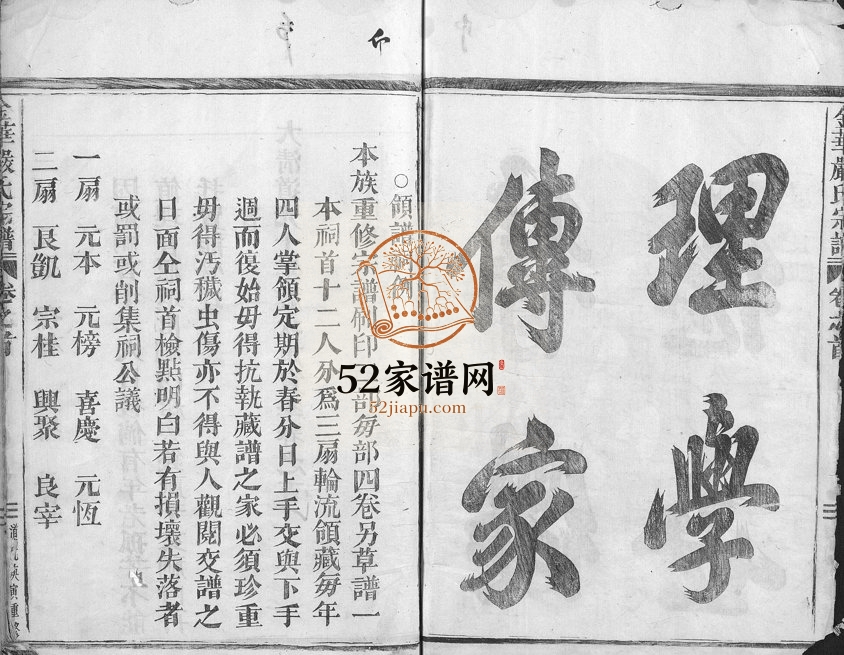 金華嚴氏宗譜 卷之首
理學
傳家
本族重修宗譜 印 部每部四卷另草譜一
本祠首十二人分爲三扇輪流領藏每年
四人掌領定期於春分日上手交與下手
週而復始毋得抗執藏譜之家必須珍重
毋得汚穢虫傷亦不得與人觀閱交譜之
日面仝祠首檢點明白若有損壞失落者
或罰或削集祠公議
一扇 元本 元榜 喜慶 元恆
二扇 良凱 宗桂 興聚 良宰
金華嚴氏宗譜 卷之首
重修
52家谱网
52jiapu.com